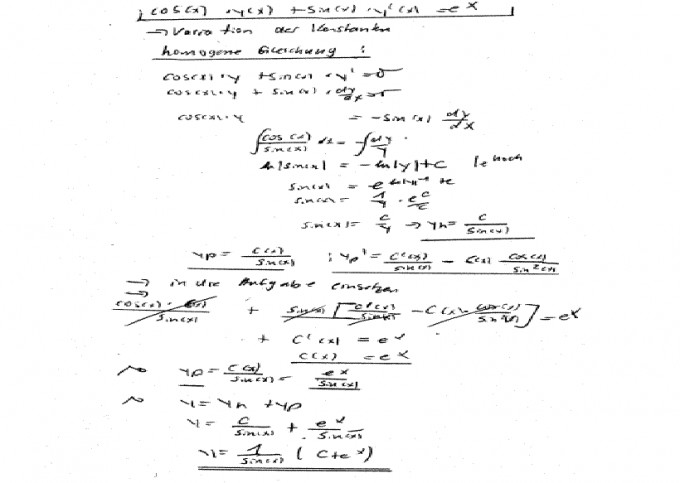 cos(x) · y(x) + sin(x) · y'(x) = e^x
→ Variation der Konstanten
homogene Gleichung :
cos(x) · y + sin(x) · y' = 0
cos(x) · y + sin(x) · dy/dx = 0
cos(x) · y = -sin(x) dy/dx
∫ cos(x)/sin(x) dx = -∫ dy/y
ln|sin(x)| = -ln|y| + C | e hoch
sin(x) = e^(ln|y|^-1 + c)
sin(x) = 1/y · e^C
sin(x) = C/y → yh = C/sin(x)
yp = C(x)/sin(x) ; yp' = C'(x)/sin(x) - C(x) cos(x)/sin²(x)
→ in die Aufgabe einsetzen
→ cos(x) · C(x)/sin(x) + sin(x) [C'(x)/sin(x) - C(x) · cos(x)/sin²(x)] = e^x
+ C'(x) = e^x
C(x) = e^x
yp = C(x)/sin(x) = e^x/sin(x)
y = yh + yp
y = C/sin(x) + e^x/sin(x)
y = 1/sin(x) (C + e^x)